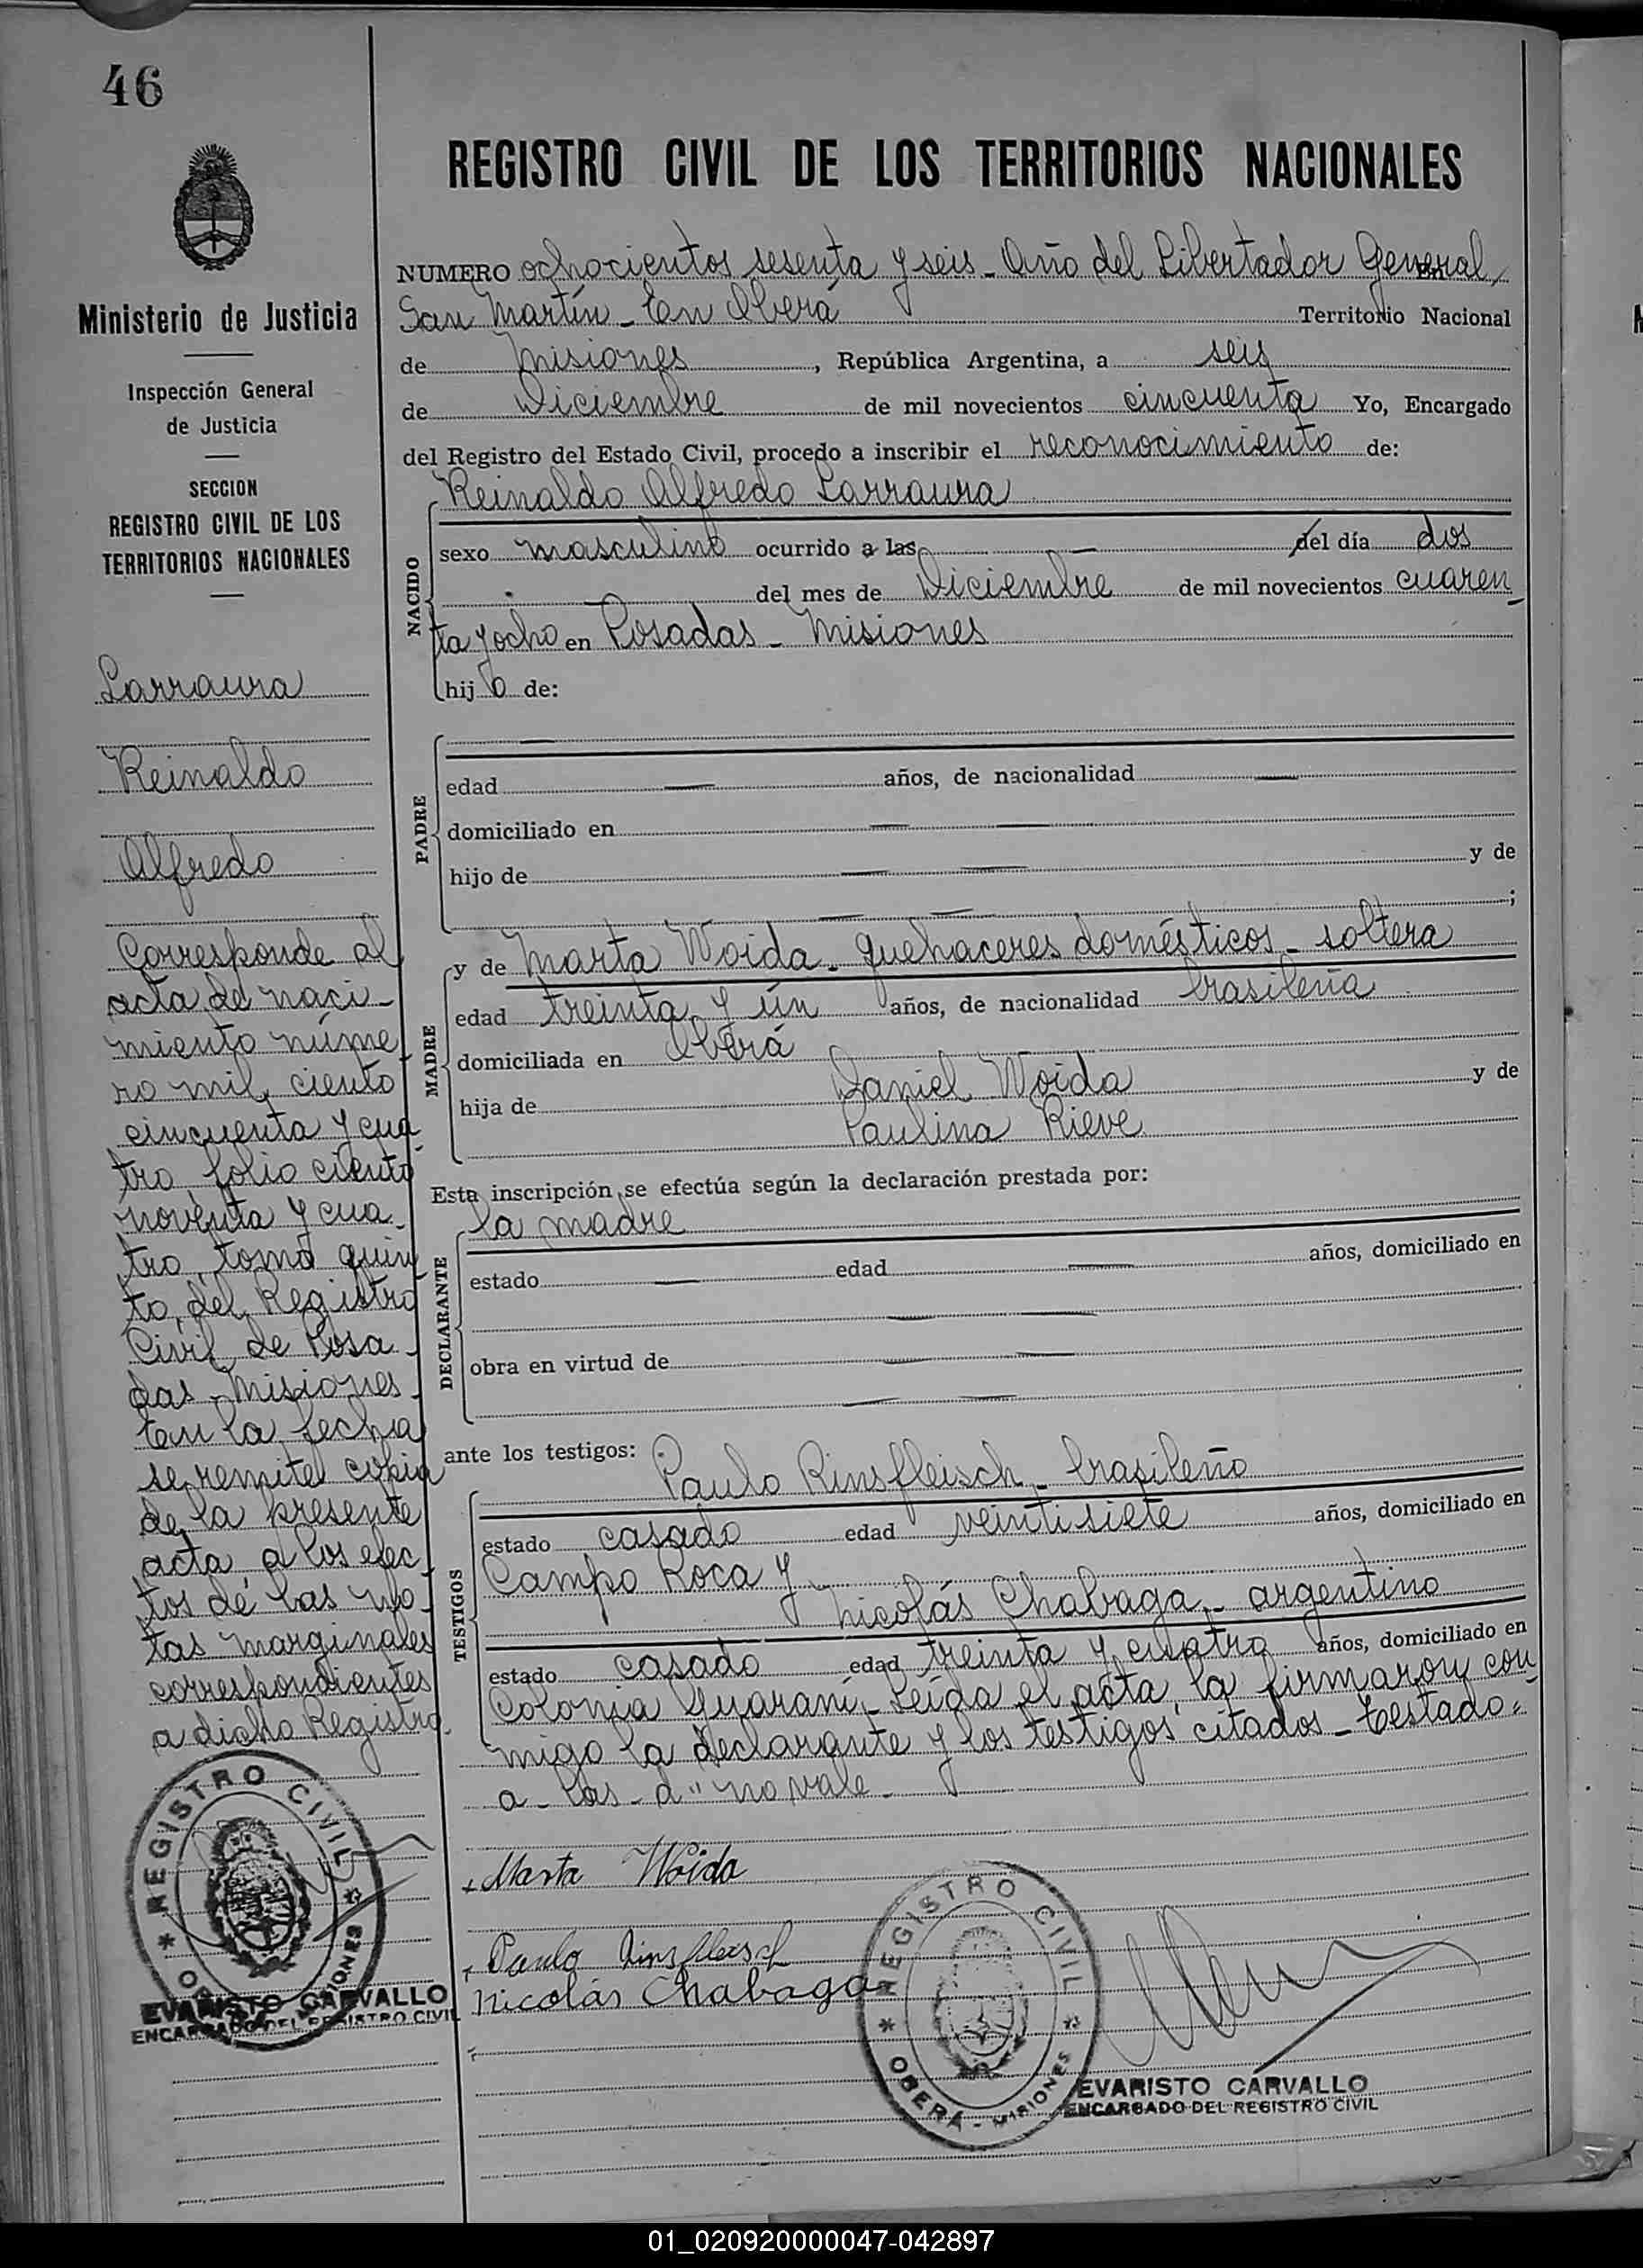 46
REGISTRO CIVIL DE LOS TERRITORIOS NACIONALES
Ministerio de Justicia
Inspección General
de Justicia
SECCION
REGISTRO CIVIL DE LOS
TERRITORIOS NACIONALES
Larraura
Reinaldo
Alfredo
Corresponde al
acta de naci-
miento núme
ro mil ciento
cincuenta y cua
tro, folio ciento
noventa y cua-
tro, tomo quin
to, del Registro
Civil de Posa-
das - Misiones -
En la fecha
se remite copia
de la presente
acta a los efec
tos de las no-
tas marginales
correspondientes
a dicho Registro.
REGISTRO CIVIL
MISIONES
EVARISTO CARVALLO
ENCARGADO DEL REGISTRO CIVIL
NUMERO ochocientos sesenta y seis - Año del Libertador General
San Martín - En Oberá Territorio Nacional
de Misiones, República Argentina, a seis
de Diciembre de mil novecientos cincuenta Yo, Encargado
del Registro del Estado Civil, procedo a inscribir el reconocimiento de:
NACIDO
Reinaldo Alfredo Larraura
sexo masculino ocurrido a las — del día dos
— del mes de Diciembre de mil novecientos cuaren
ta y ocho en Posadas - Misiones
hijo de:
PADRE
edad — años, de nacionalidad —
domiciliado en — —
hijo de — — y de
— — ;
MADRE
y de Marta Woida - quehaceres domésticos - soltera
edad treinta y ún años, de nacionalidad brasileña
domiciliada en Oberá
hija de Daniel Woida y de
Paulina Rieve
Esta inscripción se efectúa según la declaración prestada por:
DECLARANTE
la madre
estado — edad — años, domiciliado en
— —
obra en virtud de — —
— —
ante los testigos:
TESTIGOS
Paulo Rinsfleisch - brasileño
estado casado edad veintisiete años, domiciliado en
Campo Roca y
Nicolás Chabaga - argentino
estado casado edad treinta y cuatro años, domiciliado en
Colonia Guaraní - Leída el acta, la firmaron con
migo la declarante y los testigos citados - Testado:
a - las - d" no vale -
Marta Woida
Paulo Rinsfleisch
Nicolás Chabaga
REGISTRO CIVIL
OBERÁ - MISIONES
EVARISTO CARVALLO
ENCARGADO DEL REGISTRO CIVIL
01_020920000047-042897